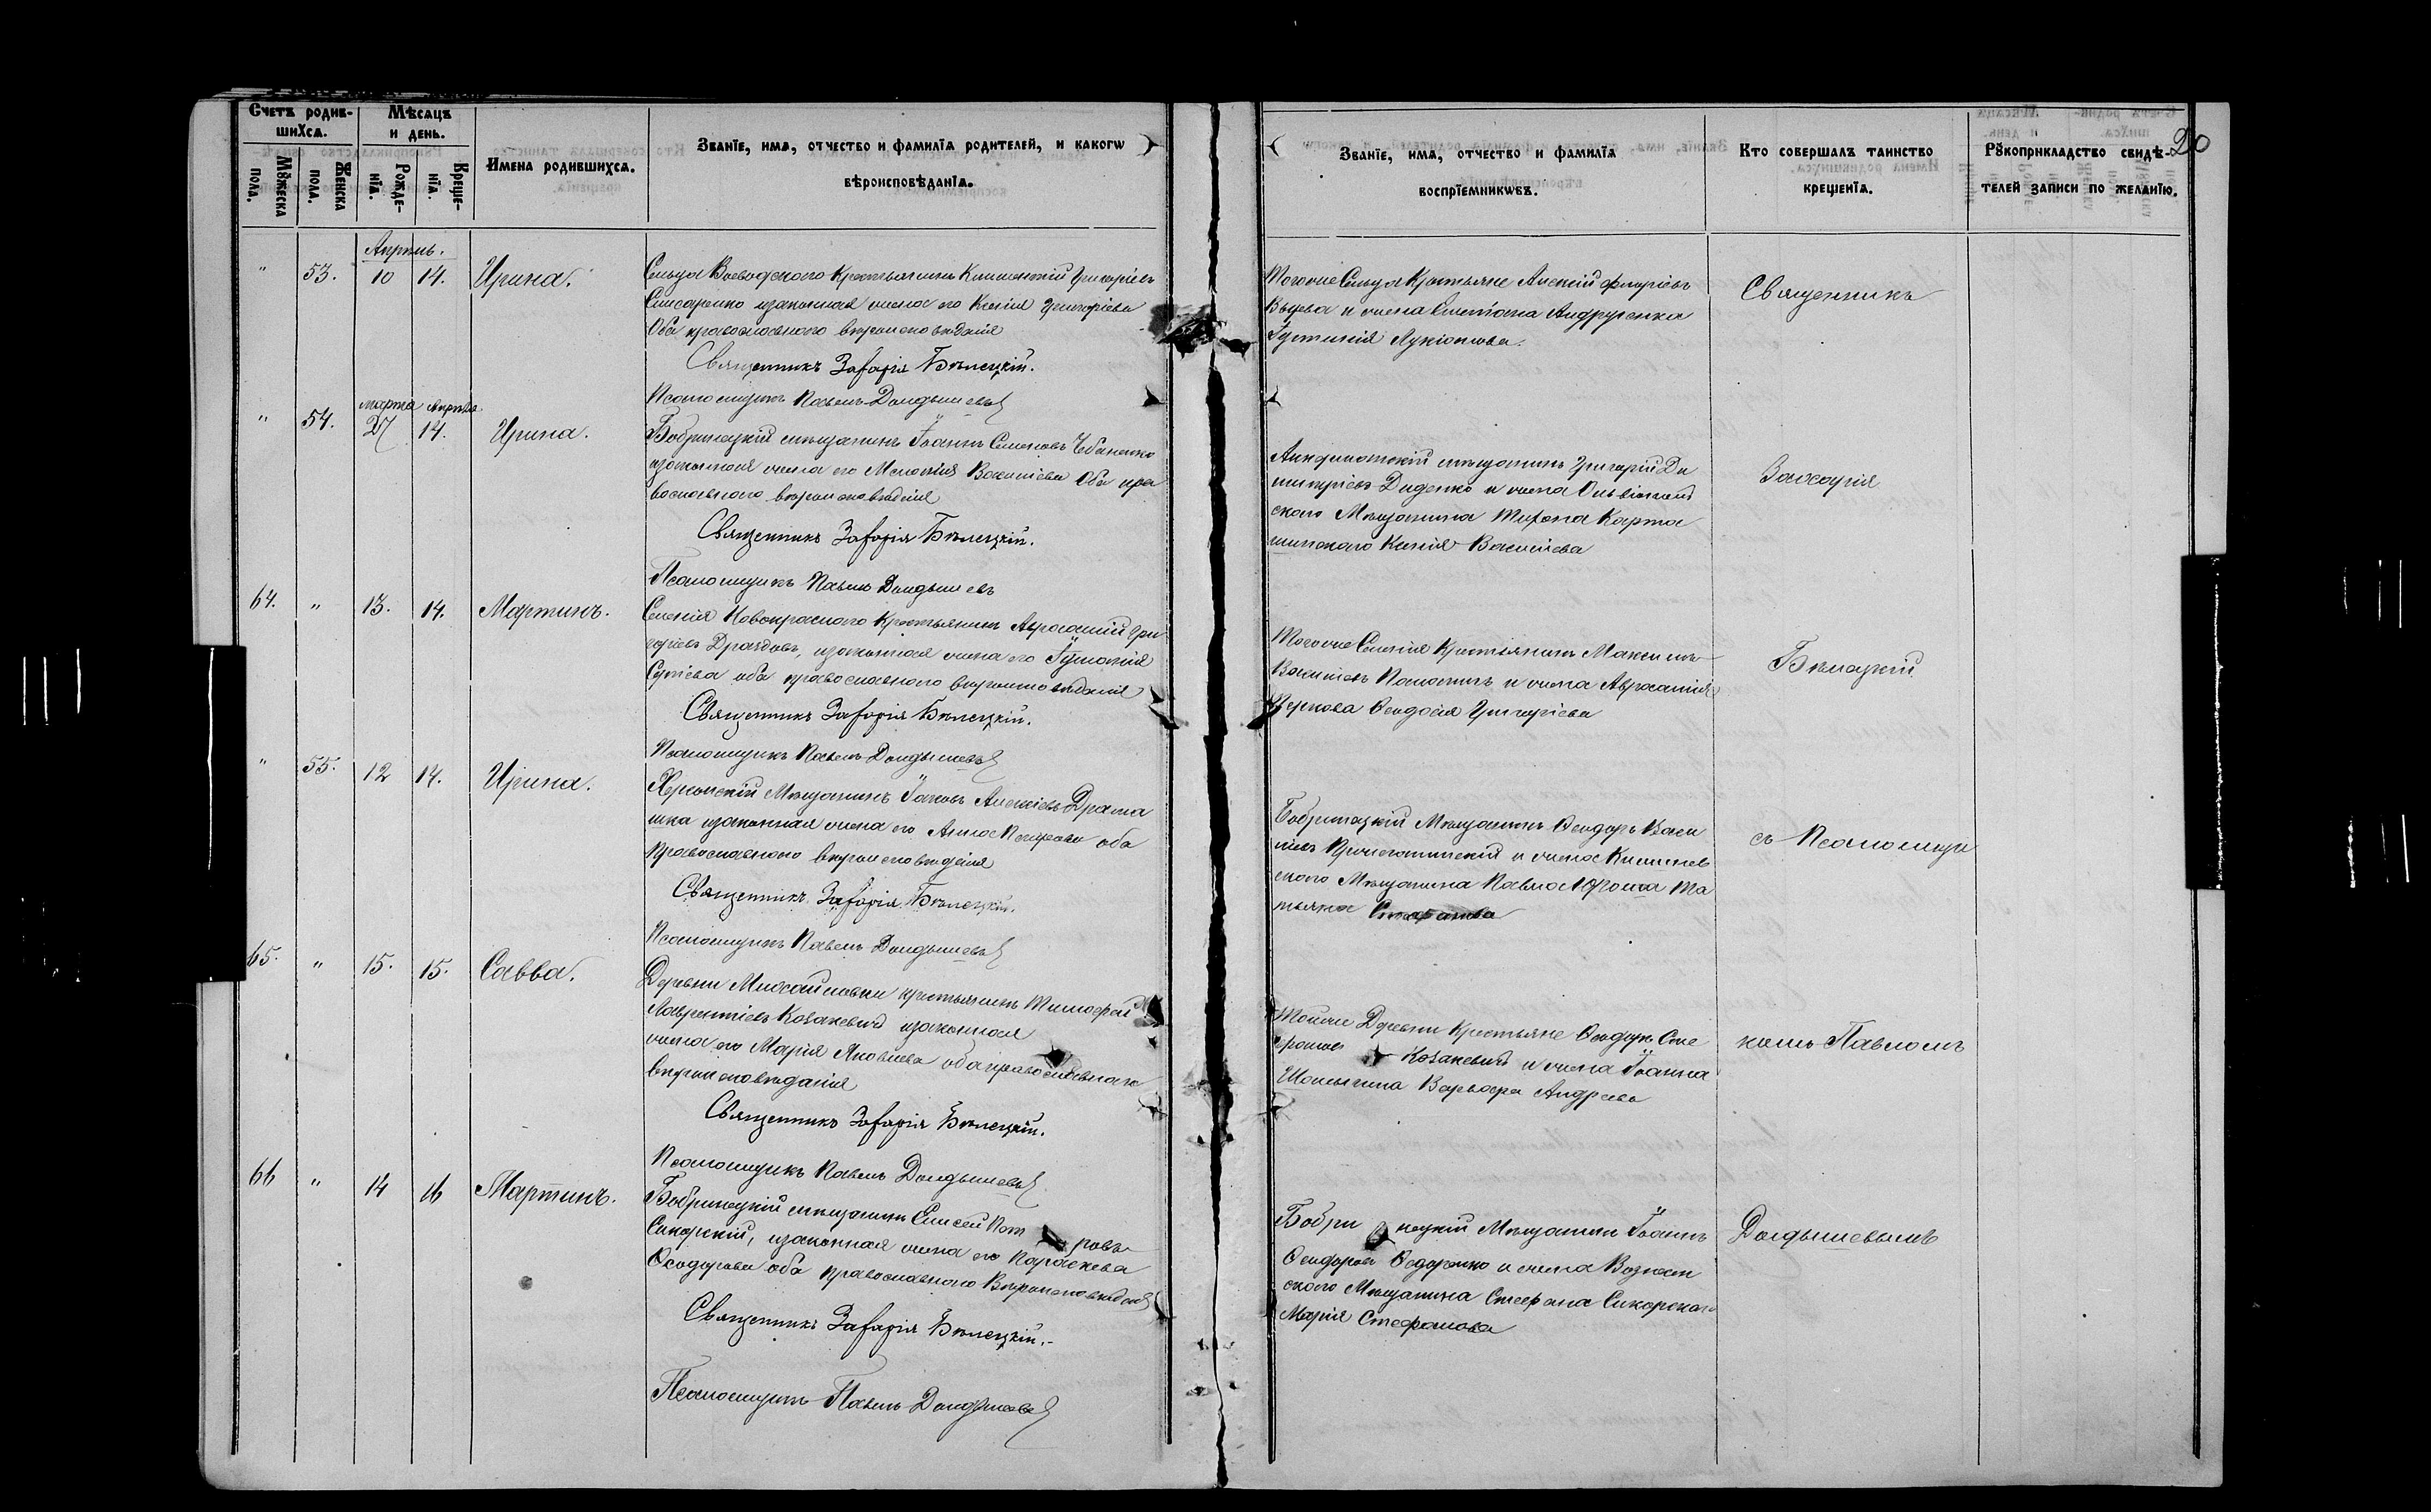 Счетъ родив-
шихся.
Мѣсяцъ
и день.
Мꙋжеска
пола.
Женска
пола.
Рожде-
нїя.
Креще-
нїя.
Имена родившихся.
Званїе, имя, отчество и фамилїя родителей, и какогѡ
вѣроисповѣданїя.
Апрѣль.
" 53. 10 14. Ирина.
Сельца Воеводского крестьянинъ Климентій Григоріевъ
законная жена его Ксенія Григоріева
Оба православного вѣроисповѣданія
Священникъ Захарія Бѣлецкій.
Псаломщикъ Павелъ Долдышевъ
марта апрѣля
" 54. 27 14. Ирина.
Бобринецкій мѣщанинъ Іоаннъ Семеновъ Чебаненко
изаконная жена его Меланія Василіева Оба пра
вославного вѣроисповѣданія
Священникъ Захарія Бѣлецкій.
Псаломщикъ Павелъ Долдышевъ
64. " 13. 14. Мартинъ.
Селенія Новокрасного крестьянинъ Афанасій Гри
горіевъ Дроздовъ, изаконная жена его
Сергіева оба православного вѣроисповѣданія
Священникъ Захарія Бѣлецкій.
Псаломщикъ Павелъ Долдышевъ
" 55. 12 14. Ирина.
Херсонскій Мѣщанинъ Іаковъ Алексіевъ
изаконная жена его Анна Петрова оба
православного вѣроисповѣданія
Священникъ Захарія Бѣлецкій.
Псаломщикъ Павелъ Долдышевъ
65. " 15. 15. Савва.
Деревни Михайловки крестьянинъ Тимофей
Лаврентіевъ Козакевичъ изаконная
жена его Марія Яковлева оба православного
вѣроисповѣданія
Священникъ Захарія Бѣлецкій.
Псаломщикъ Павелъ Долдышевъ
66 " 14 16 Мартинъ.
Бобринецкій мѣщанинъ Елисей Пет ровъ
Сикорскій, изаконная жена его Параскева
Ѳеодорова оба православного Вѣроисповѣданія
Священникъ Захарія Бѣлецкій.
Псаломщикъ Павелъ Долдышевъ
20
Званїе, имя, отчество и фамилїя
воспрїемникѡвъ.
Кто совершалъ таинство
крещенїя.
Рꙋкоприкладство свидѣ-
телей записи по желанїю.
Тогоже Сельца Крестьяне Алексій
и жена Андруенка
Іустинія
Ананьевскій мѣщанинъ Григорій Ди
митріевъ Диденко и жена Ольвіополь
ского Мѣщанина Тихона Карта
Ксенія Василіева
Тогоже Селенія Крестьянинъ Максимъ
Василіевъ и жена Афанасія
Ѳеодосія Григоріева
Бобринецкій Мѣщанинъ Ѳеодоръ Васи
ліевъ и жена Кишинев
ского Мѣщанина Павла Та
тьяна
Тойже Деревни Крестьяне Ѳеодоръ Сте
фановъ Козакевичъ и жена Іоанна
Варвара Андреева
Бобри нецкій Мѣщанинъ Іоаннъ
Ѳеодоровъ Ѳедоренко и жена Вознесен
ского Мѣщанина Стефана Сикорского
Марія Стефанова
Священникъ
Захарія
Бѣлецкій
съ Псаломщи
комъ Павломъ
Долдышевымъ